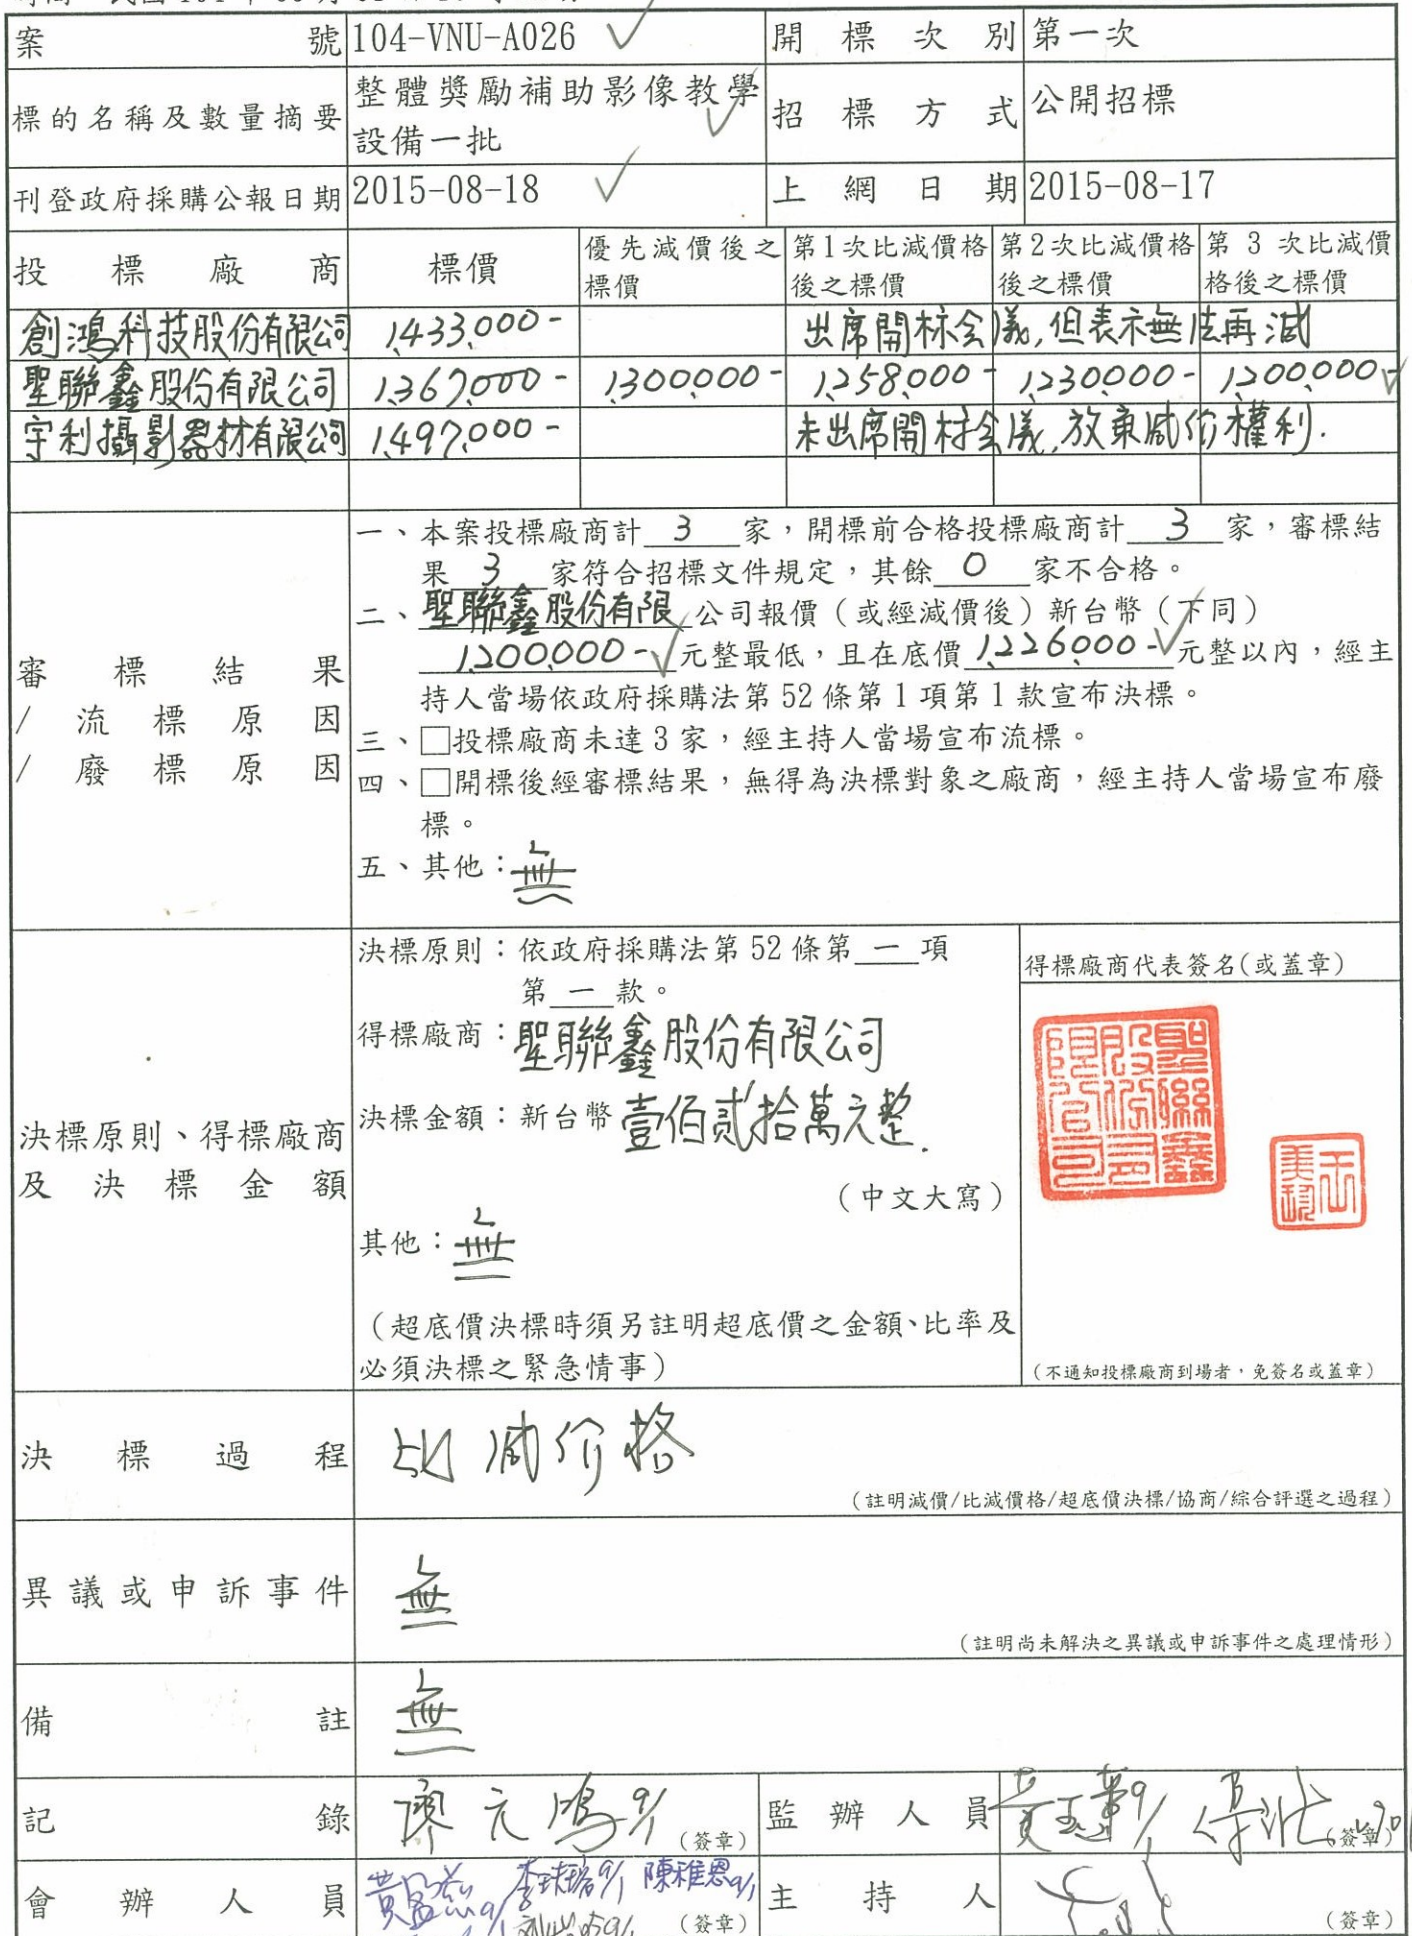 案號 104-VNU-A026 開標次別 第一次
標的名稱及數量摘要 整體獎勵補助影像教學設備一批 招標方式 公開招標
刊登政府採購公報日期 2015-08-18 上網日期 2015-08-17
投標廠商 標價 優先減價後之標價 第1次比減價格後之標價 第2次比減價格後之標價 第3次比減價格後之標價
創鴻科技股份有限公司 1,433,000- 出席開标会議,但表示無法再減
聖聯鑫股份有限公司 1,367,000- 1,300,000- 1,258,000- 1,230,000- 1,200,000-
宇利攝影器材有限公司 1,497,000- 未出席開标会議,放棄减价權利.
審標結果
/流標原因
/廢標原因
一、本案投標廠商計 3 家，開標前合格投標廠商計 3 家，審標結
果 3 家符合招標文件規定，其餘 0 家不合格。
二、聖聯鑫股份有限公司報價（或經減價後）新台幣（下同）
1,200,000- 元整最低，且在底價 1,226,000- 元整以內，經主
持人當場依政府採購法第 52 條第 1 項第 1 款宣布決標。
三、□投標廠商未達 3 家，經主持人當場宣布流標。
四、□開標後經審標結果，無得為決標對象之廠商，經主持人當場宣布廢
標。
五、其他：無
決標原則、得標廠商
及決標金額
決標原則：依政府採購法第 52 條第 一 項
第 一 款。
得標廠商：聖聯鑫股份有限公司
決標金額：新台幣 壹佰貳拾萬元整.
（中文大寫）
其他：無
（超底價決標時須另註明超底價之金額、比率及
必須決標之緊急情事）
得標廠商代表簽名(或蓋章)
聖聯鑫股份有限公司
（不通知投標廠商到場者，免簽名或蓋章）
決標過程 比减价格
（註明減價/比減價格/超底價決標/協商/綜合評選之過程）
異議或申訴事件 無
（註明尚未解決之異議或申訴事件之處理情形）
備註 無
記錄 廖元鴻 9/1 （簽章） 監辦人員 （簽章）
會辦人員 陳雅恩 9/1 （簽章） 主持人 （簽章）